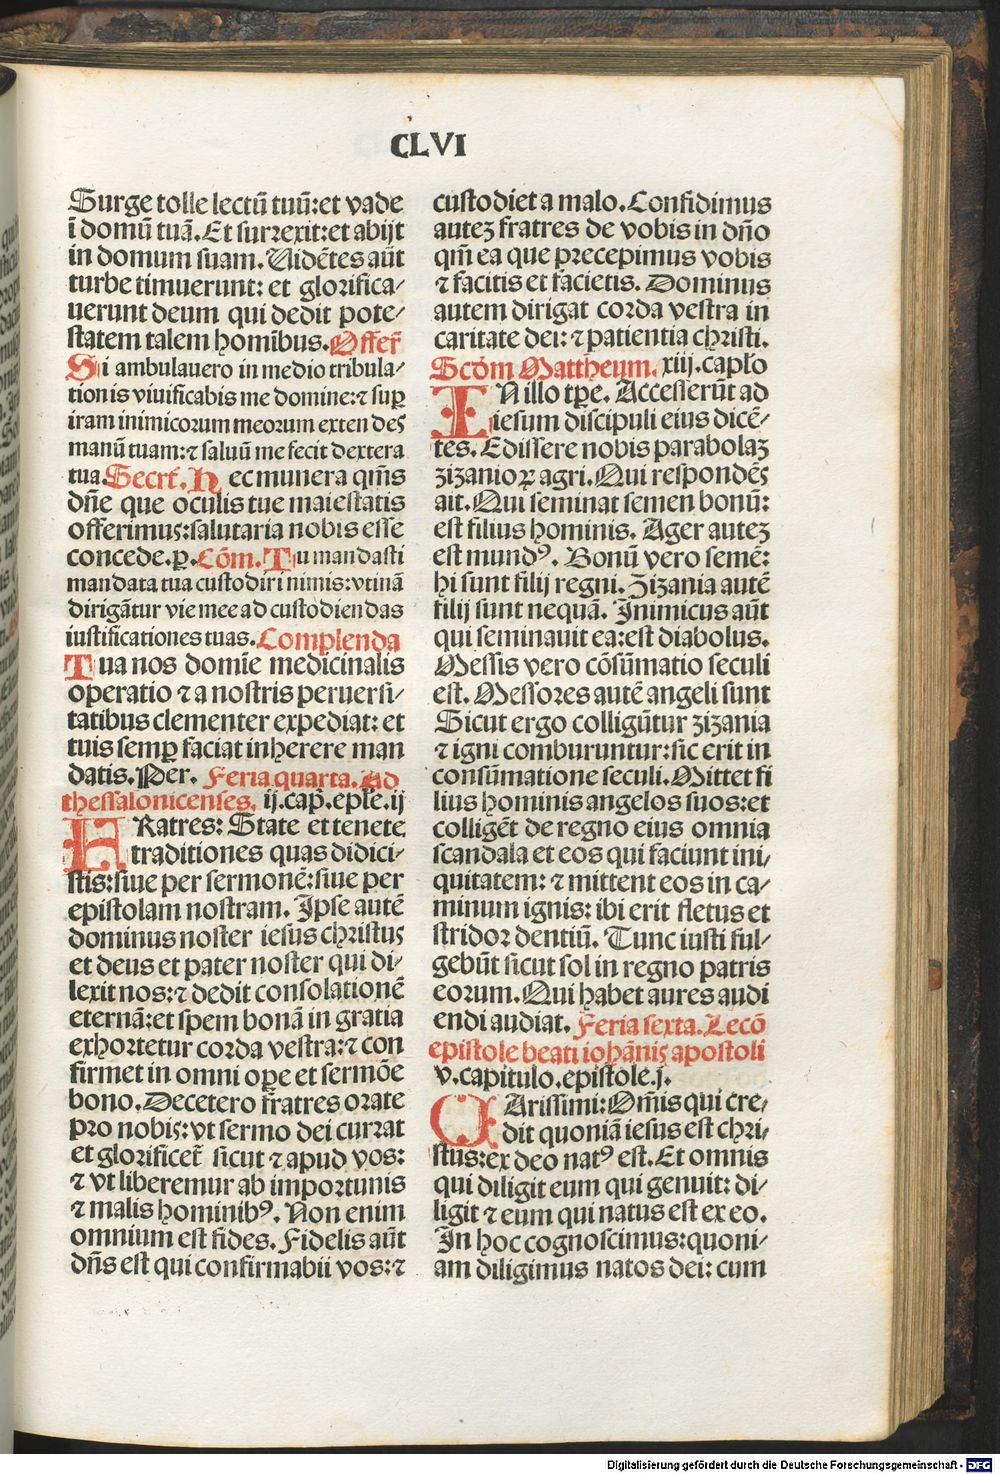 CLVI
Surge tolle lectū tuū:et vade
ī domū tuā.Et surrexit:et abijt
in domum suam.Uidētes aūt
turbe timuerunt: et glorifica⸗
uerunt deum qui dedit pote⸗
statem talem homībus.Offer̄
Si ambulauero in medio tribula⸗
tionis viuificabis me domine:⁊ suꝑ
iram inimicorum meorum exten des
manū tuam:⁊ saluū me fecit dextera
tua.Secrt̄.Hec munera qm̄s
dn̄e que oculis tue maiestatis
offerimus:salutaria nobis esse
concede.ꝑ.Cōm.Tu mandasti
mandata tua custodiri nimis:vtinā
dirigātur vie mee ad custodiendas
iustificationes tuas.Complenda
Tua nos domīe medicinalis
operatio ⁊ a nostris peruersi⸗
tatibus clementer expediat: et
tuis semꝑ faciat inherere man
datis.Per. Feria quarta.Ad
thessalonicenses. ij.cap̄.epl̄e.ij
FRatres: State et tenete
traditiones quas didici⸗
stis:siue per sermonē:siue per
epistolam nostram. Ipse autē
dominus noster iesus christus
et deus et pater noster qui di⸗
lexit nos:⁊ dedit consolationē
eternā:et spem bonā in gratia
exhortetur corda vestra:⁊ con
firmet in omni oꝑe et sermōe
bono.Decetero fratres orate
pro nobis:vt sermo dei currat
et glorificet̄ sicut ⁊ apud vos:
⁊ vt liberemur ab importunis
⁊ malis hominibꝰ. Non enim
omnium est fides. Fidelis aūt
dn̄s est qui confirmabit vos:⁊
custodiet a malo.Confidimus
autez fratres de vobis in dn̄o
qm̄ ea que precepimus vobis
⁊ facitis et facietis. Dominus
autem dirigat corda vestra in
caritate dei: ⁊ patientia christi.
Scdm̄ Mattheum. xiij.capl̄o
IN illo tꝑe. Accesserūt ad
iesum discipuli eius dicē⸗
tes. Edissere nobis parabolaz
zizanioꝝ agri.Qui respondēs
ait.Qui seminat semen bonū:
est filius hominis. Ager autez
est mundꝰ. Bonū vero semē:
hi sunt filij regni. Zizania autē
filij sunt nequā. Inimicus aūt
qui seminauit ea:est diabolus.
Messis vero cōsūmatio seculi
est. Messores autē angeli sunt
Sicut ergo colligūtur zizania
⁊ igni comburuntur:sic erit in
consūmatione seculi.Mittet fi
lius hominis angelos suos:et
colligēt de regno eius omnia
scandala et eos qui faciunt ini⸗
quitatem: ⁊ mittent eos in ca⸗
minum ignis: ibi erit fletus et
stridor dentiū. Tunc iusti ful⸗
gebūt sicut sol in regno patris
eorum.Qui habet aures audi
endi audiat. Feria sexta.Lecō
epistole beati iohānis apostoli
v.capitulo.epistole.j.
CArissimi:Om̄is qui cre⸗
dit quoniā iesus est chri⸗
stus:ex deo natꝰ est.Et omnis
qui diligit eum qui genuit: di⸗
ligit ⁊ eum qui natus est ex eo.
In hoc cognoscimus:quoni⸗
am diligimus natos dei: cum
Digitalisierung gefördert durch die Deutsche Forschungsgemeinschaft - DFG